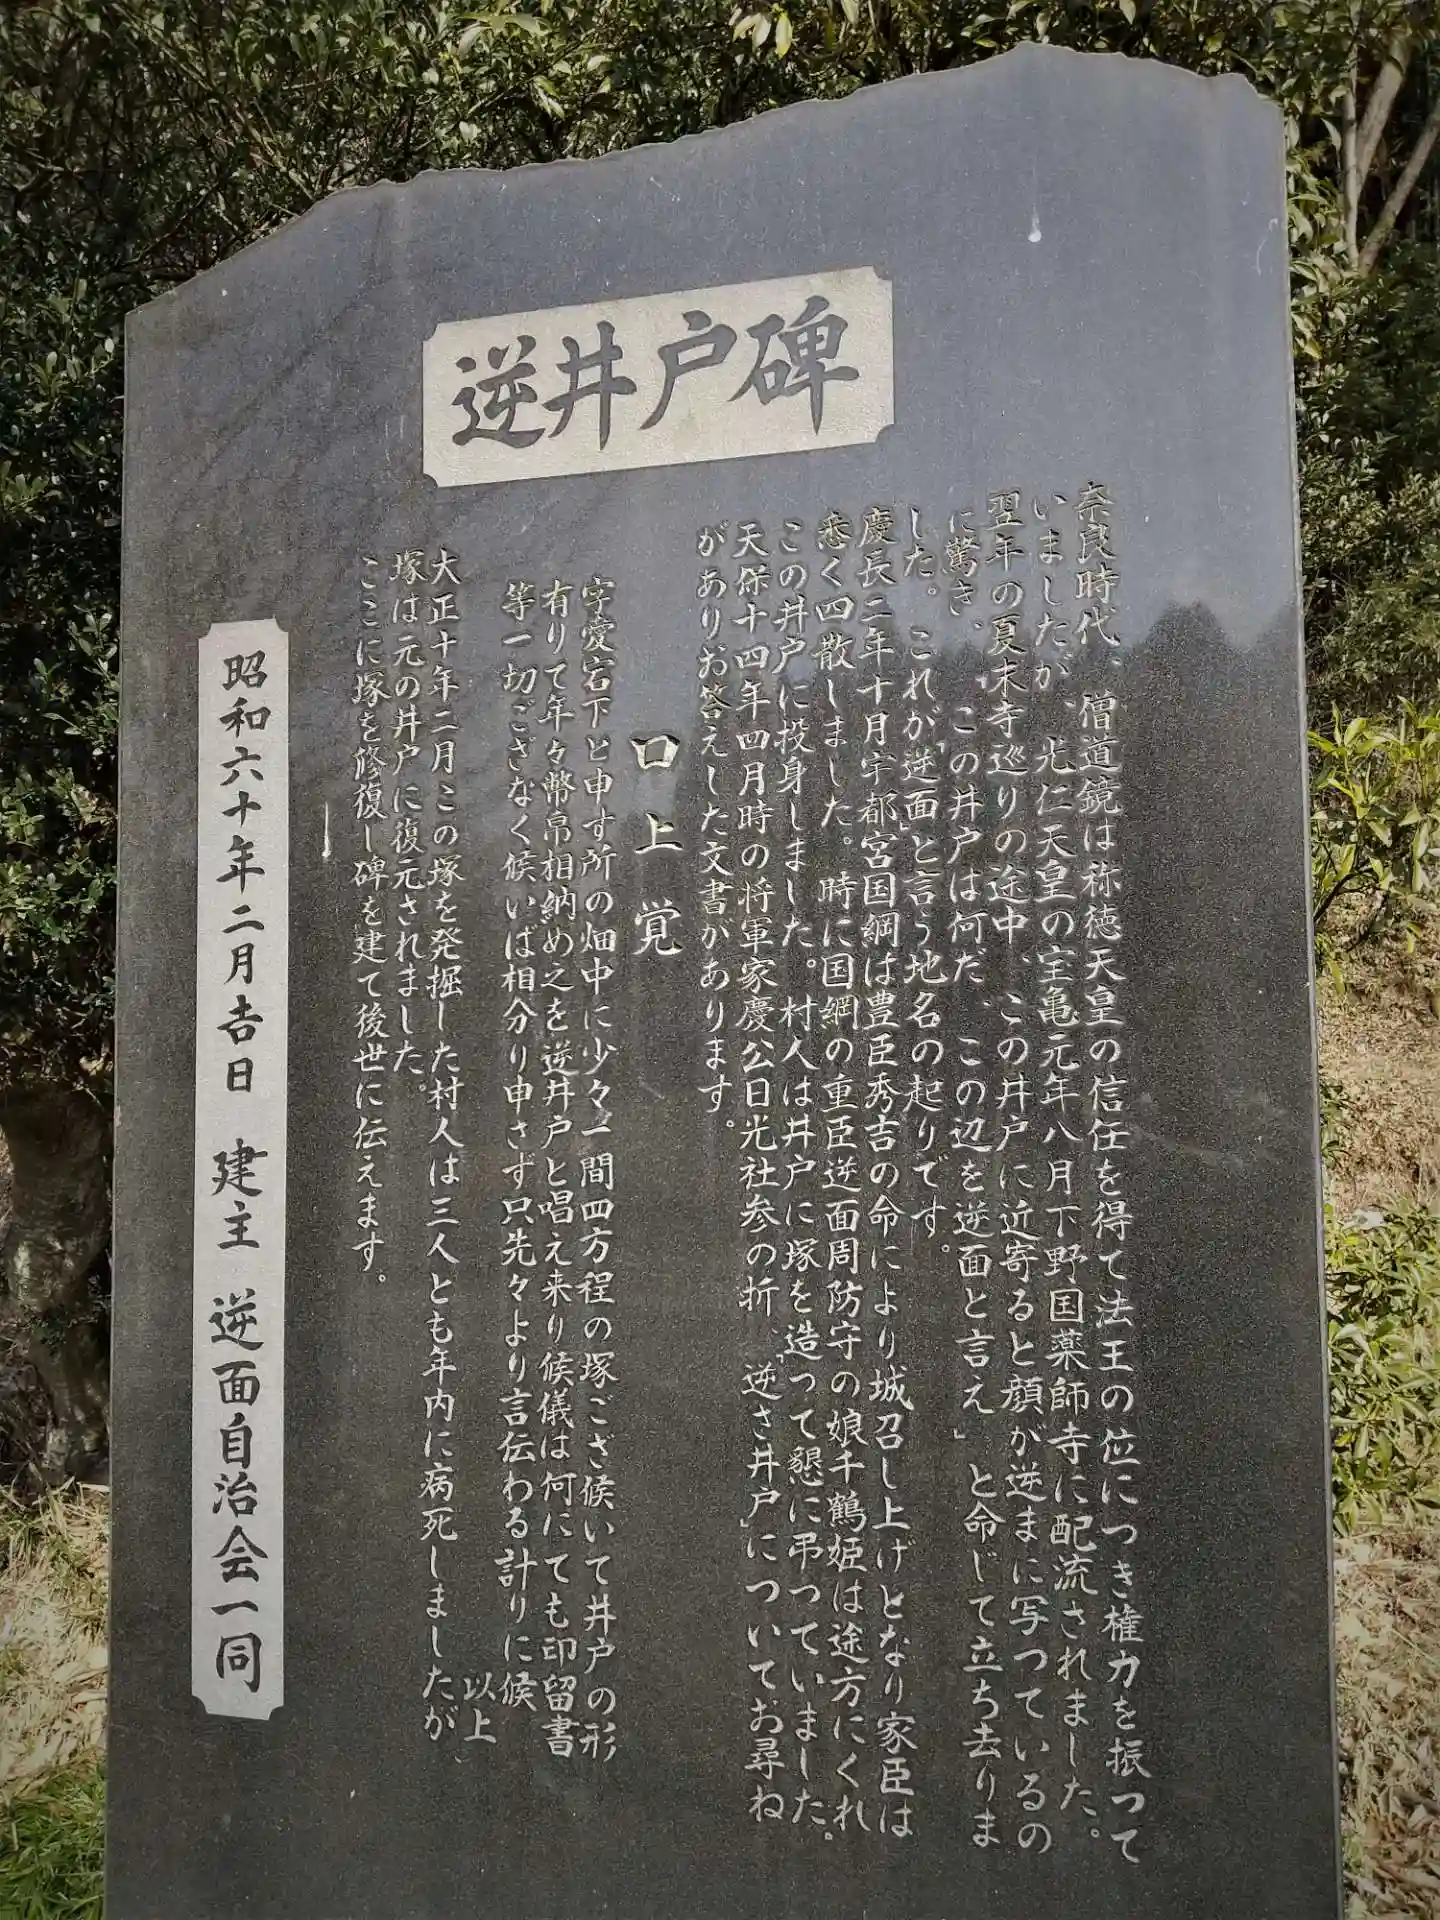 逆井戸碑
奈良時代、僧道鏡は称徳天皇の信任を得て法王の位につき権力を振って
いましたが、光仁天皇の宝亀元年八月下野国薬師寺に配流されました。
翌年の夏末寺巡りの途中、この井戸に近寄ると顔が逆まに写っているの
に驚き、「この井戸は何だ、この辺を逆面と言え」と命じて立ち去りま
した。これが「逆面」と言う地名の起りです。
慶長二年十月宇都宮国綱は豊臣秀吉の命により城召し上げとなり家臣は
悉く四散しました。時に国綱の重臣逆面周防守の娘千鶴姫は途方にくれ
この井戸に投身しました。村人は井戸に塚を造って懇に弔っていました。
天保十四年四月時の将軍家慶公日光社参の折、「逆さ井戸」についてお尋ね
がありお答えした文書があります。
口上覚
字愛宕下と申す所の畑中に少々一間四方程の塚ござ候いて井戸の形
有りて年々幣帛相納め之を逆井戸と唱え来り候儀は何にても印留書
等一切ござなく候いば相分り申さず只先々より言伝わる計りに候
以上
大正十年二月この塚を発掘した村人は三人とも年内に病死しましたが、
塚は元の井戸に復元されました。
ここに塚を修復し碑を建て後世に伝えます。
昭和六十年二月吉日 建主 逆面自治会一同